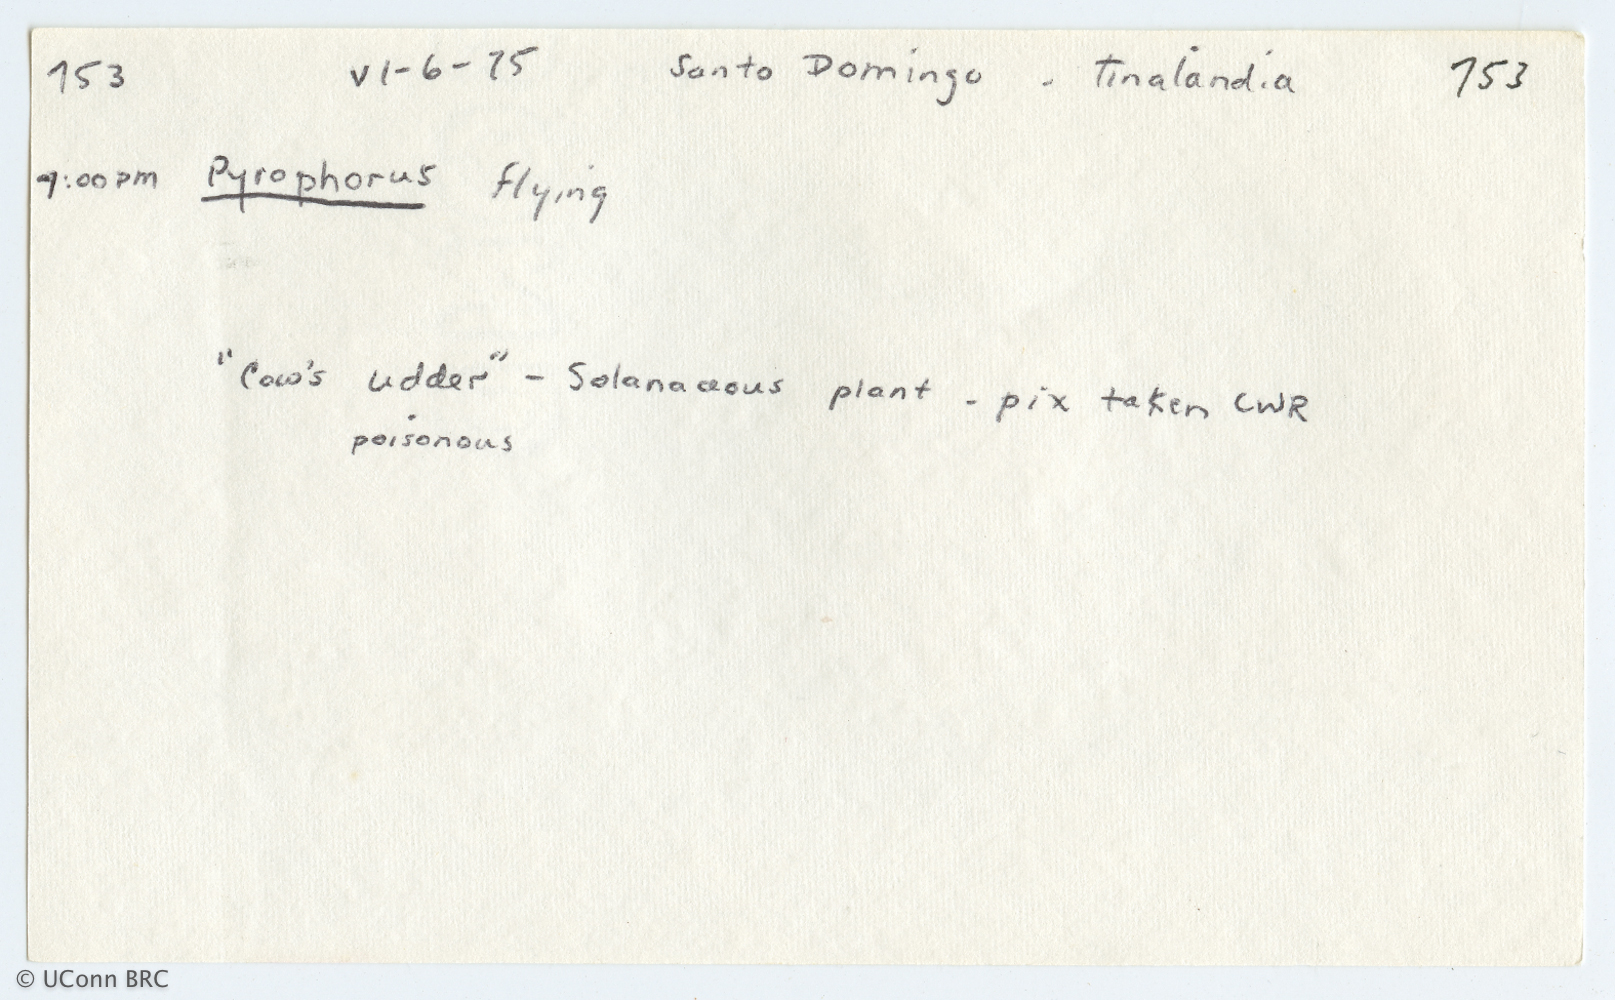 753 VI-6-75 Santo Domingo - Tinalandia 753
7:00 PM Pyrophorus flying
"Cow's udder" - Solanaceous plant - pix taken CWR
poisonous
© UConn BRC